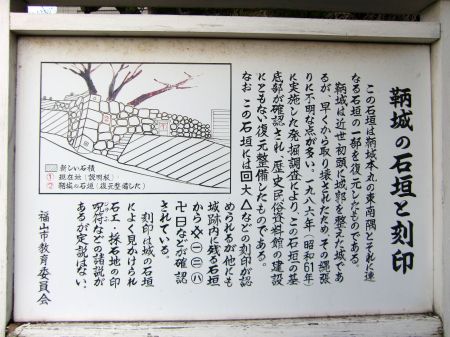 鞆城の石垣と刻印
この石垣は鞆城本丸の東南隅とそれに連
なる石垣の一部を復元したものである。
鞆城は近世初頭に城郭を整えた城であ
るが、早くから取り壊されたため、その縄張
りに不明な点が多い。一九八六年(昭和61年)
に実施した発掘調査により、この石垣の基
底部が確認され、歴史民俗資料館の建設
にともない復元整備したものである。
なお、この石垣には回大△などの刻印が認
められるが他にも
城跡内に残る石垣
から
卍日などが確認
されている。
刻印は城の石垣
によく見かけられ
石工・採石地の印
呪符などの諸説が
あるが定説はない。
福山市教育委員会
新しい石積
① 現在地(説明板)
② 鞆城の石垣(復元整備した)